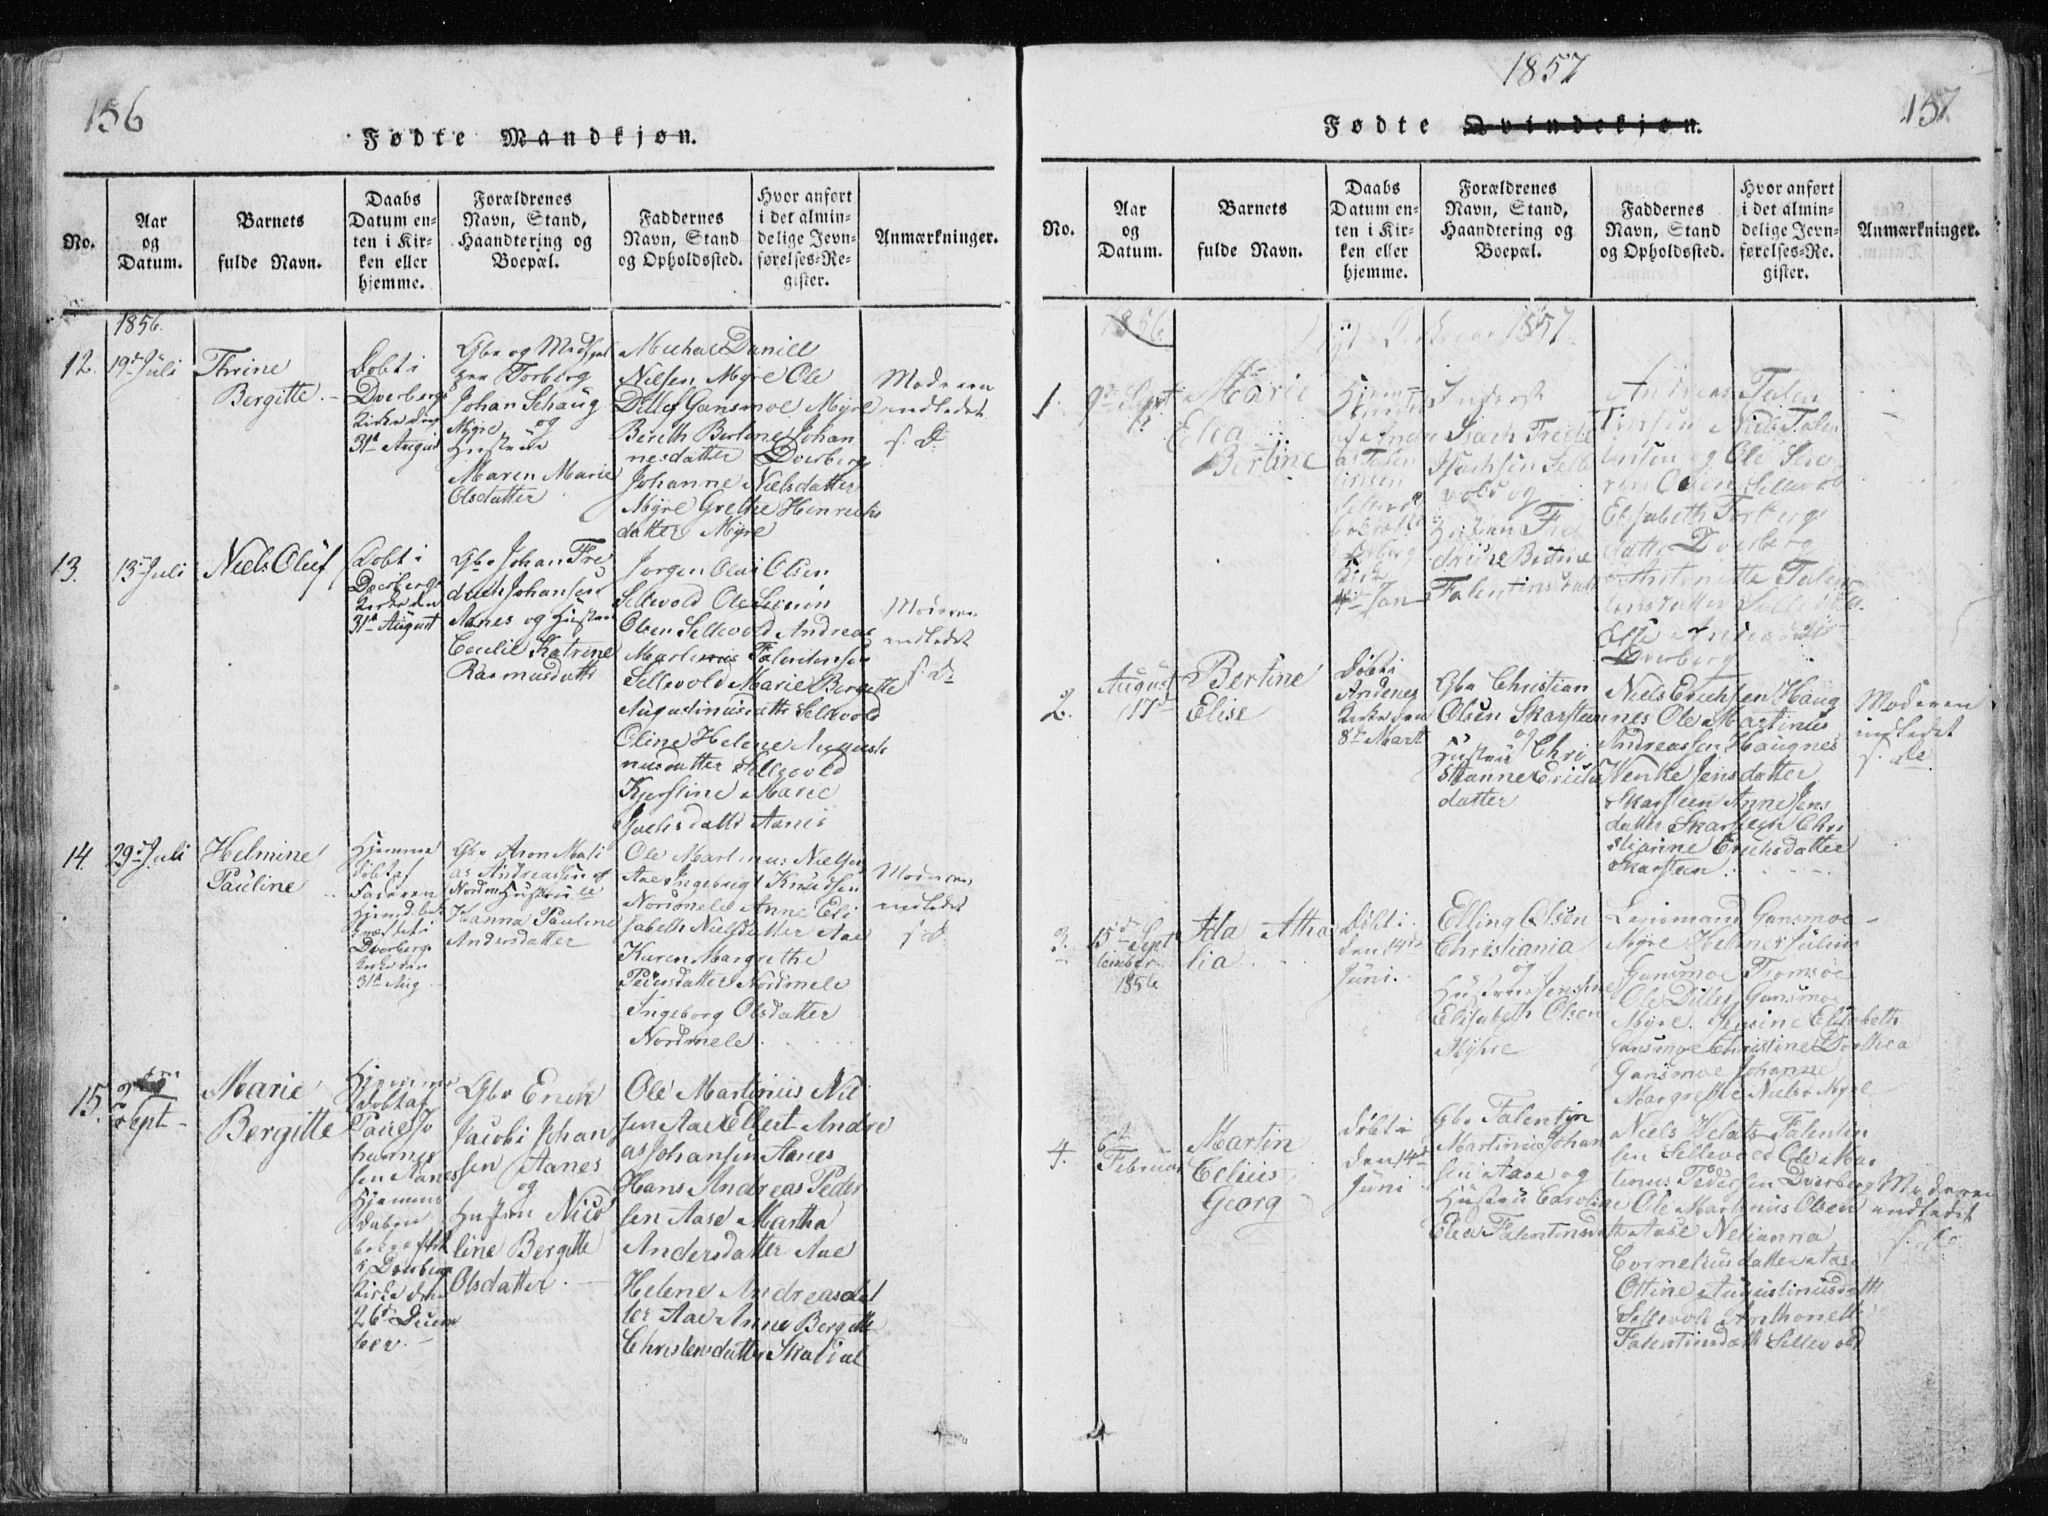 156
Fødte Mandkjøn.
No.
Aar
og
Datum.
Barnets
fulde Navn.
Daabs
Datum en-
ten i Kir-
ken eller
hjemme.
Forældrenes
Navn, Stand,
Haandtering og
Boepæl.
Faddernes
Navn, Stand
og Opholdssted.
Hvor anført
i det almin-
delige Jevn-
førelses-Re-
gister.
Anmærkninger.
1856.
12.
19de Juli
Thrine
Bergitte.
Døbt i
Dverbergs
Kirke den
31te August
Johan Schaug
Myre og
Hustrue
Maren Marie
Olsdatter
Michael Daniel
Nielsen Myre Ole
Ditlef Gansmoe Myre
Bereth Bertine Johan
nesdatter Dverberg
Johanne Nielsdatter
Myre Grethe Henrichs
datter Myre
Moderen
indledet
s. D.
13.
13de Juli
Niels Oluf
Døbt i
Dverbergs
Kirke den
31te August
Gbr Johan Fre
drich Johansen
Aanes og Hustru
Cecilie Katrine
Rasmusdatter
Jørgen Olai Olsen
Sellevold Ole Severin
Olsen Sellevold Andreas
Martinus Falentinsen
Sellevold Marie Bergitte
Augustinusdatter Sellevold
Oline Helene Augusti
nusdatter Sellevold
Kjerstine Marie
Jachsdatter Aanes
Moderen
indledet
s. D.
14.
29de Juli
Helmine
Pauline
Hjemme
døbt af
Faderen
Dverbergs
Kirke den
31te Aug
Gbr Aron Mati
as Andreassen
Hanna Pauline
Andersdatter
Ole Martinus Nielsen
Aae Ingebrigt Knudsen
Nordmele Anne Eli
sabeth Nielsdatter Aae
Karen Margrethe
Pedersdatter Nordmele
Ingeborg Olsdatter
Nordmele
Moderen
indledet
s. D.
15.
Sept
Marie
Bergitte
Hjemme
døbt af
hannes
sen Aanes
Hjemme
daaben
bekræftet
i Dverberg
Kirke den
26de Decem
ber.
Gbr Erick
Jacobi Johan
sen Aanes
og
Hustru Nico
line Bergitte
Olsdatter.
Ole Martinius Niel
sen Aae Ellert Andre
as Johansen Aanes
Hans Andreas Peder
sen Aase Martha
Andersdatter Aae
Helene Andreasdat
ter Aae Anne Bergitte
Christensdatter
1857
157
Fødte Qvindekjøn.
No.
Aar
og
Datum.
Barnets
fulde Navn.
Daabs
Datum en-
ten i Kir-
ken eller
hjemme.
Forældrenes
Navn, Stand,
Haandtering og
Boepæl.
Faddernes
Navn, Stand
og Opholdssted.
Hvor anført
i det almin-
delige Jevn-
førelses-Re-
gister.
Anmærkninger.
1856
1857.
1.
9de Sept
Marie
Elea
Bertine
af Andre
as Falen
tinsen
Kirke
4de Jan
Isach Fredr
Isachsen Selle
vold og
Hustru Fre
drikke
Falentinsdatter
Andreas Falen
tinsen Niels Falen
tinsen og Ole Seve
ren Olsen Sellevold
Elisabeth Torbergs
datter Dverberg
Antonette Falen
tinsdatter Sellevold
Dverberg
2.
August
17de
Bertine
Elise
Døbt i
Andenes
Kirke den
8de Mart
Gbr Christian
Olsen Skarsteen
og
Hustru Chri
stianne Erichs
datter
Niels Erichsen Haug
nes Ole Martinus
Andreassen Haugnes
Wenke Jensdatter
Skarsteen Anne Jens
datter Skarsteen Chri
stianne Erichsdatter
Skarsteen
Moderen
indledet
3.
15de Sept
tember
1856
Ada Atha
lia
Døbt i
den 14de
Juni.
Elling Olsen
Christiania
og
Hustru Jensine
Elisabeth Olsen
Myhre
Lensmand Gansmoe
Myre Helmer Julius
Gansmoe Tromsøe
Ole Ditlef Gansmoe
Myre. Jensine Elisabeth
Gansmoe Christine Dorthea
Gansmoe Johanne
Margrethe Niels Myre
4.
6te
Februar
Martin
Celius
Georg
Døbt i
den 14de
Juni
Gbr Falentin
Martinius Johan
sen Aase og
Hustru Caroline
Elea Falentinsdatt
Niels Falentin
sen Sellevold Ole Mar
tinus Pedersen Dverberg
Ole Martinus Olsen
Aase Nelianna
Corneliusdatter Aase
Ottine Augustinusdatt
Sellevold Anthonett
Falentinsdatt Sellevold
Moderen
indledet